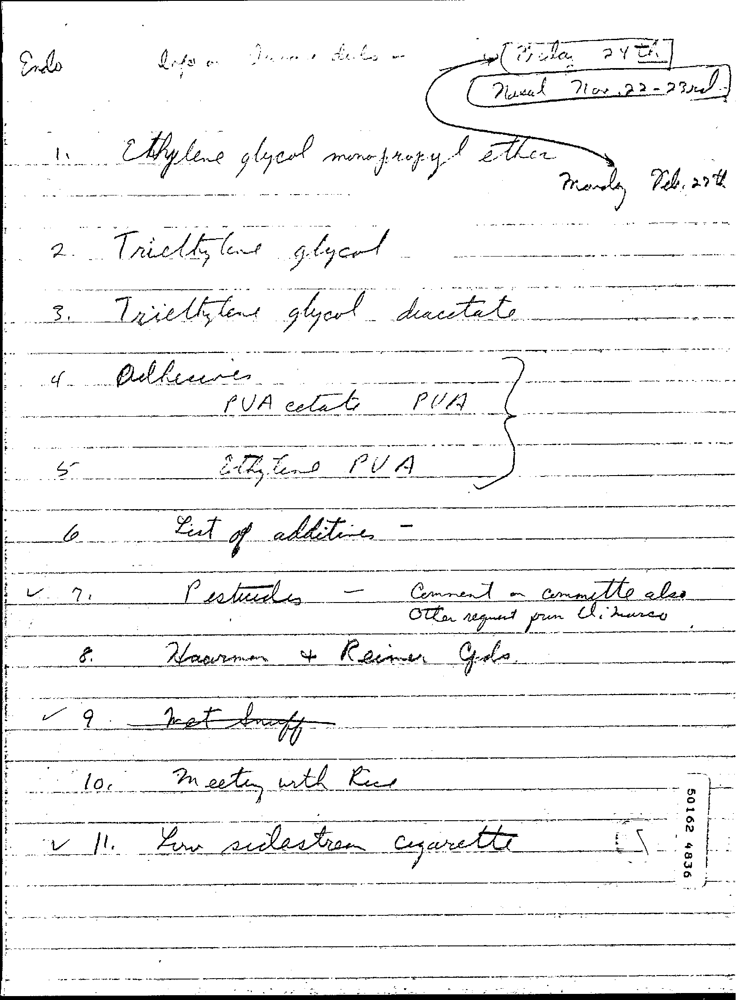 Endo Info on
24th
Nov. 22-23rd
1. Ethylene glycol monopropyl ether
Monday Feb. 27th
2. Triethylene glycol
3. Triethylene glycol diacetate
4. Adhesives
PVA cetate PVA
5 Ethylene PVA
6 List of additives -
✓ 7. Pesticides - Comment on committe also
Other request from
8. Haarman + Reimer Gods.
✓ 9. Wet Snuff
10. Meeting with Rice
✓ 11. Low sidestream cigarette
50162 4836